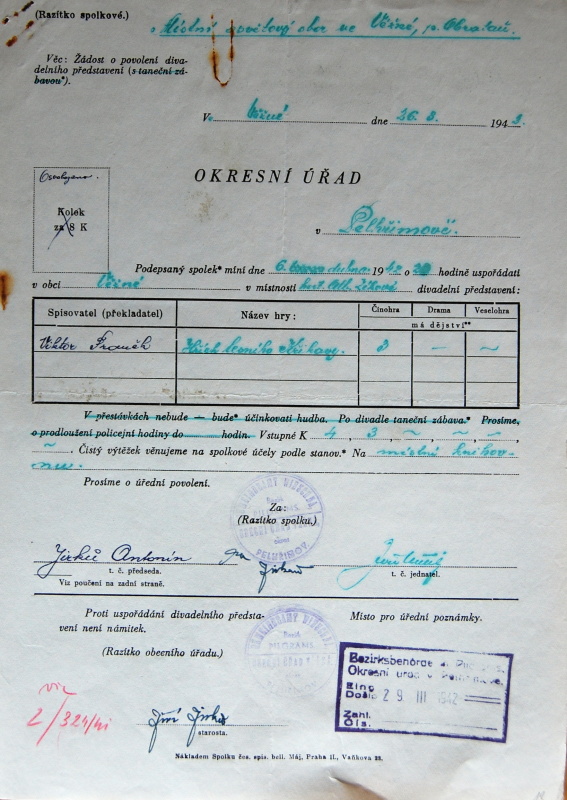 (Razítko spolkové.)
Místní osvětový sbor ve Včžné, p. Obrataň.
Věc: Žádost o povolení diva-
delního představení (s taneční zá-
bavou*).
Ve Věžné dne 26. 3. 1942.
OKRESNÍ ÚŘAD
Osvobozeno.
Kolek
za 8 K
v Pelhřimově.
Podepsaný spolek* míní dne 6. dubna 1942 o 20 hodině uspořádati
v obci Věžné v místnosti host. divadelní představení:
Spisovatel (překladatel) Název hry: Činohra Drama Veselohra
má dějství**
Viktor 3 — ~
V přestávkách nebude — bude* účinkovati hudba. Po divadle taneční zábava.* Prosíme,
o prodloužení policejní hodiny do hodin. Vstupné K 4, 3, ~, ~, ~,
~. Čistý výtěžek věnujeme na spolkové účely podle stanov.* Na místní knihov-
nu.
Prosíme o úřední povolení.
Za:
(Razítko spolku.)
PELHŘIMOV
Jirků Antonín
t. č. předseda. t. č. jednatel.
Viz poučení na zadní straně.
Proti uspořádání divadelního předsta-
vení není námitek.
Místo pro úřední poznámky.
(Razítko obecního úřadu.)
Bezirksbehörde
Okresní úřad v Pelhřimově.
Eing.
Došlo 29 III 1942
Zahl.
Čís.
viz
2/324/41
Jiří Jirků
starosta.
Nákladem Spolku čes. spis. bell. Máj, Praha II., Vaňkova 23.